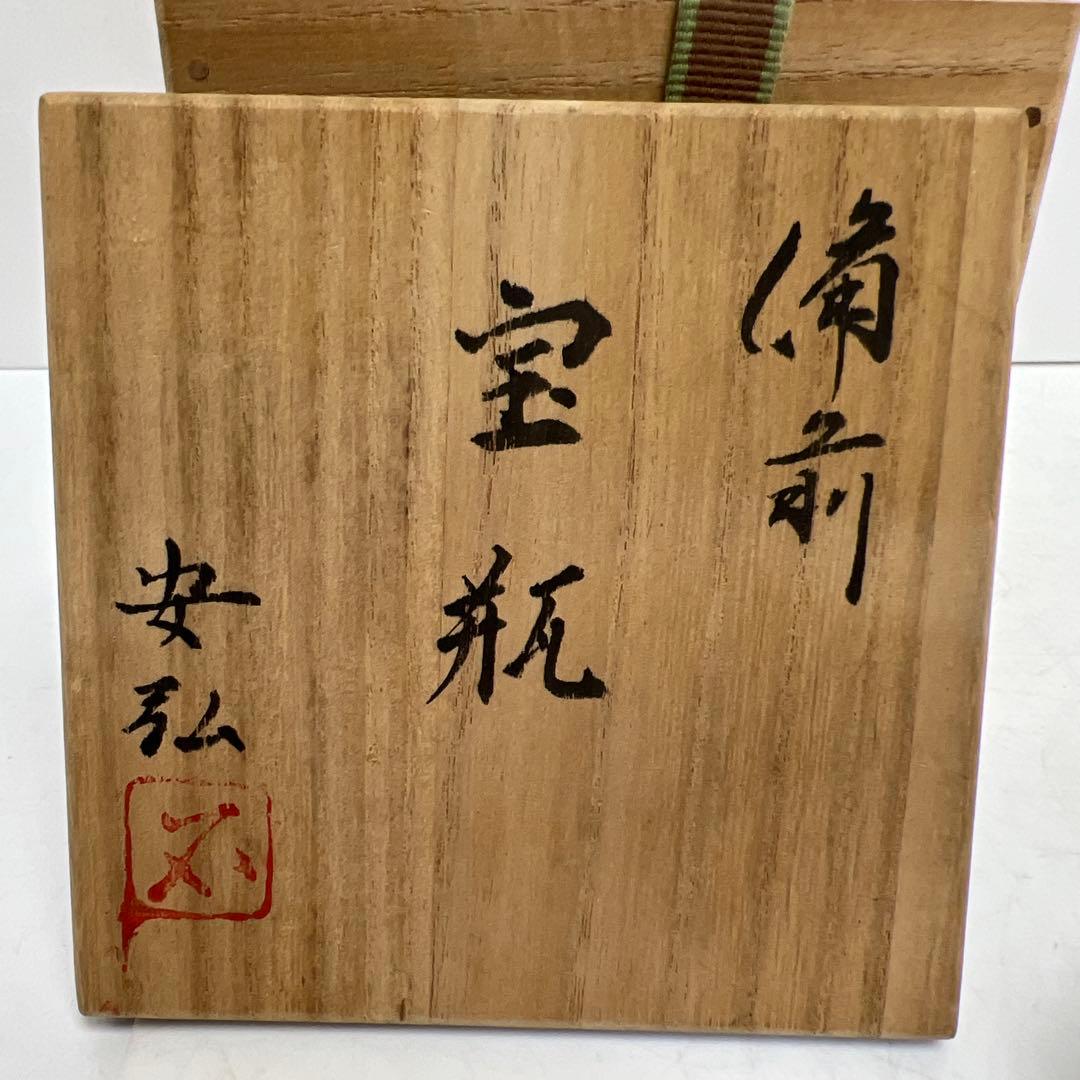 備前
宝瓶
安弘